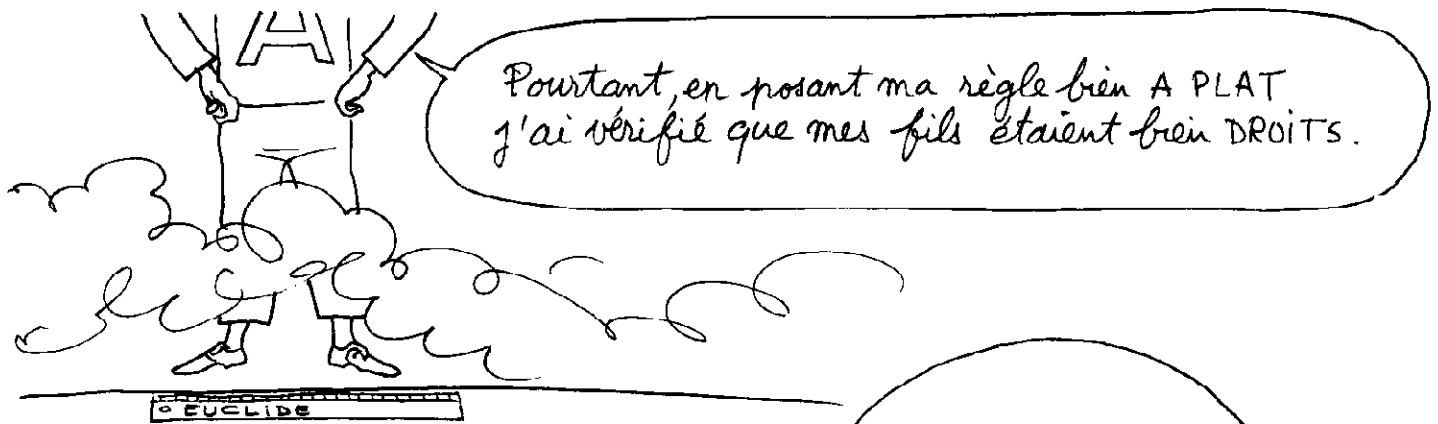 A
Pourtant, en posant ma règle bien A PLAT
j'ai vérifié que mes fils étaient bien DROITS.
EUCLIDE